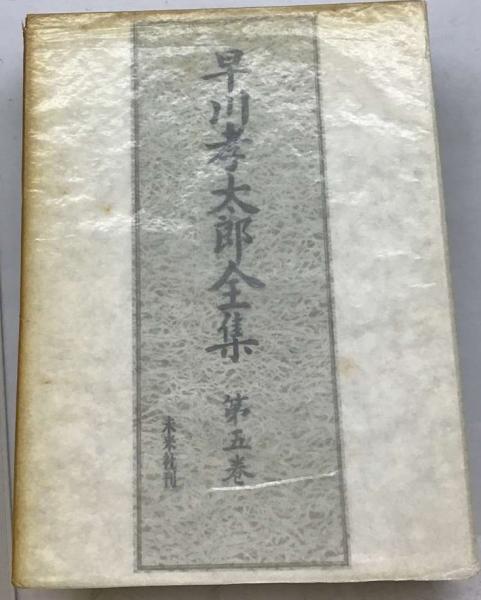 早川孝太郎全集
第五巻
未来社刊